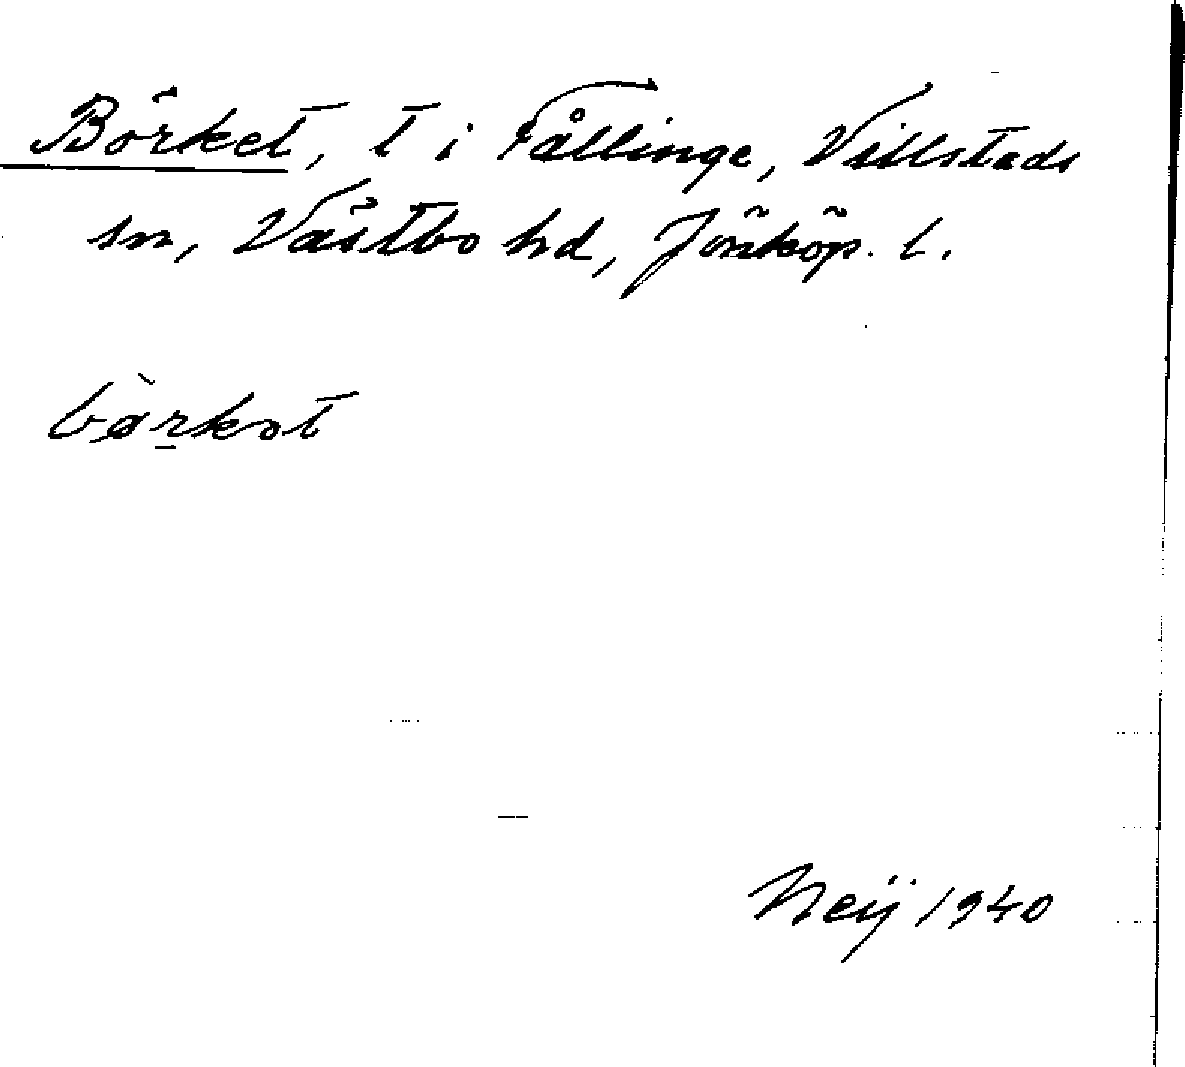 Börket, t i Fållinge, Villstads
sn, Västbo hd, Jönköp. l.
Neij 1940